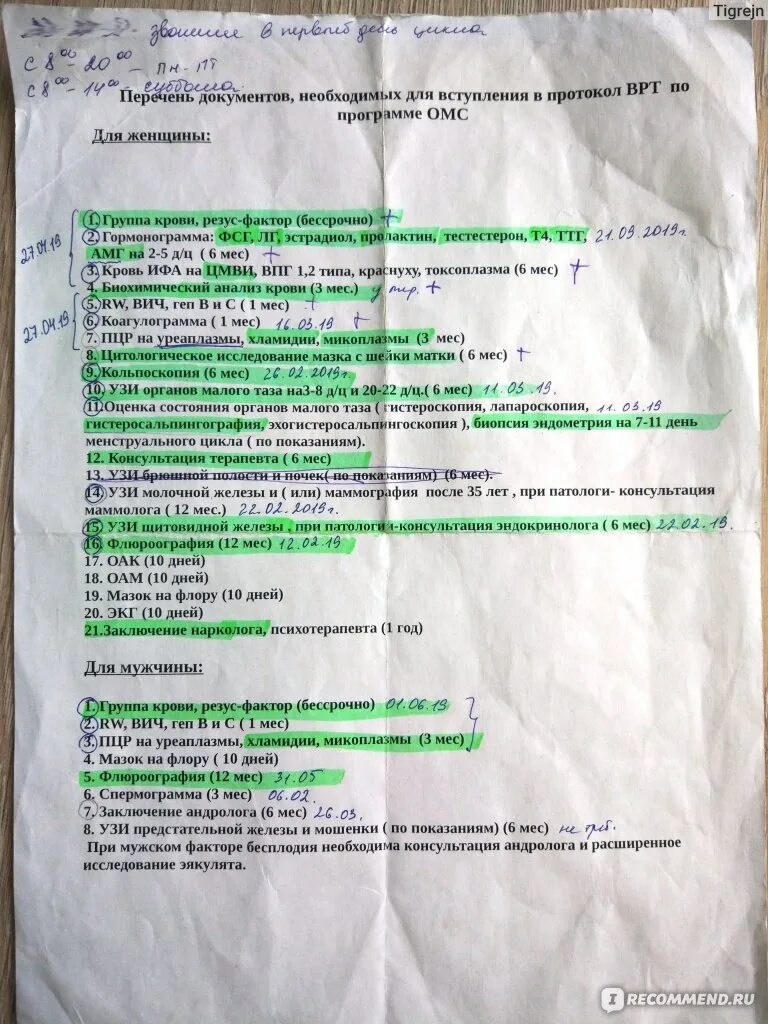 Tigrejn
звонить в первый день цикла
с 8⁰⁰ - 20⁰⁰ - пн-пт
с 8⁰⁰ - 14⁰⁰ - суббота
Перечень документов, необходимых для вступления в протокол ВРТ по
программе ОМС
Для женщины:
1. Группа крови, резус-фактор (бессрочно) +
2. Гормонограмма: ФСГ, ЛГ, эстрадиол, пролактин, тестестерон, Т4, ТТГ, 21.03.2019г.
27.04.19
АМГ на 2-5 д/ц ( 6 мес) +
3. Кровь ИФА на ЦМВИ, ВПГ 1,2 типа, краснуху, токсоплазма (6 мес) +
4. Биохимический анализ крови (3 мес.) +
5. RW, ВИЧ, геп В и С ( 1 мес) +
27.04.19
6. Коагулограмма ( 1 мес) 16.03.19 +
7. ПЦР на уреаплазмы, хламидии, микоплазмы (3 мес)
8. Цитологическое исследование мазка с шейки матки ( 6 мес) +
9. Кольпоскопия (6 мес) 26.02.2019г.
10. УЗИ органов малого таза на3-8 д/ц и 20-22 д/ц.( 6 мес) 11.03.19.
11.Оценка состояния органов малого таза ( гистероскопия, лапароскопия, 11.03.19
гистеросальпингография, эхогистеросальпингоскопия ), биопсия эндометрия на 7-11 день
менструального цикла ( по показаниям).
12. Консультация терапевта ( 6 мес)
13. УЗИ брюшной полости и почек( по показаниям) (6 мес).
14. УЗИ молочной железы и ( или) маммография после 35 лет , при патологи- консультация
маммолога ( 12 мес.) 22.02.2019г.
15. УЗИ щитовидной железы , при патологи-консультация эндокринолога ( 6 мес) 22.02.19.
16. Флюроография (12 мес) 12.02.19
17. ОАК (10 дней)
18. ОАМ (10 дней)
19. Мазок на флору (10 дней)
20. ЭКГ (10 дней)
21.Заключение нарколога, психотерапевта (1 год)
Для мужчины:
1. Группа крови, резус-фактор (бессрочно) 01.06.19
2. RW, ВИЧ, геп В и С ( 1 мес)
3. ПЦР на уреаплазмы, хламидии, микоплазмы (3 мес)
4. Мазок на флору ( 10 дней)
5. Флюроография (12 мес) 31.05
6. Спермограмма (3 мес) 06.02.
7. Заключение андролога (6 мес) 26.03.
8. УЗИ предстательной железы и мошенки ( по показаниям) (6 мес) не треб.
При мужском факторе бесплодия необходима консультация андролога и расширенное
исследование эякулята.
I RECOMMEND.RU